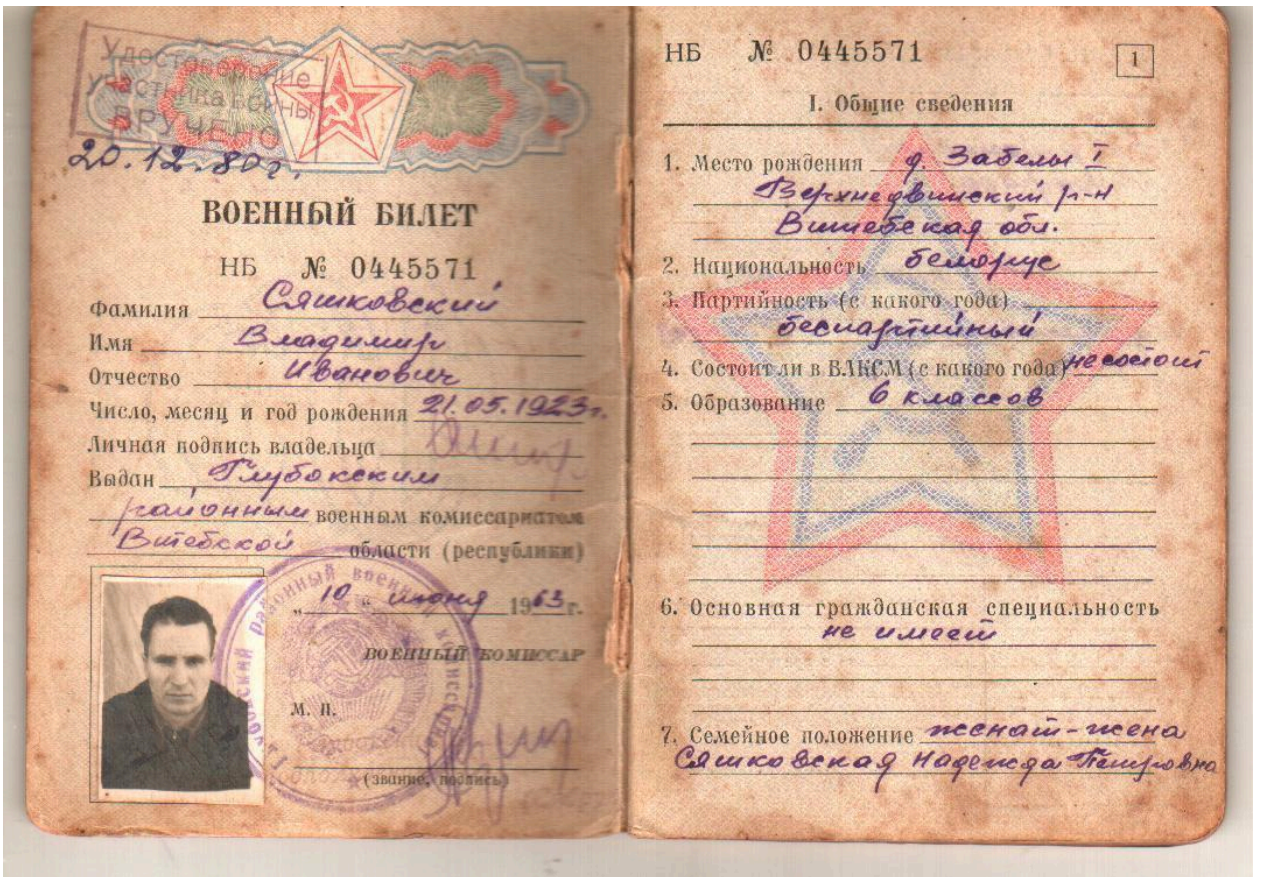 Удостоверение
участника войны
ВРУЧЕНО
20.12.80г.
ВОЕННЫЙ БИЛЕТ
НБ № 0445571
Фамилия Сяшковский
Имя Владимир
Отчество Иванович
Число, месяц и год рождения 21.05.1923г.
Личная подпись владельца
Выдан Глубокским
районным военным комиссариатом
Витебской области (республики)
„10“ июня 1963 г.
ВОЕННЫЙ КОМИССАР
М. П.
(звание, подпись)
НБ № 0445571
1
I. Общие сведения
1. Место рождения д. Забелы I
Верхнедвинский р-н
Витебская обл.
2. Национальность белорус
3. Партийность (с какого года)
беспартийный
4. Состоит ли в ВЛКСМ (с какого года) не состоит
5. Образование 6 классов
6. Основная гражданская специальность
не имеет
7. Семейное положение женат-жена
Сяшковская Надежда Петровна